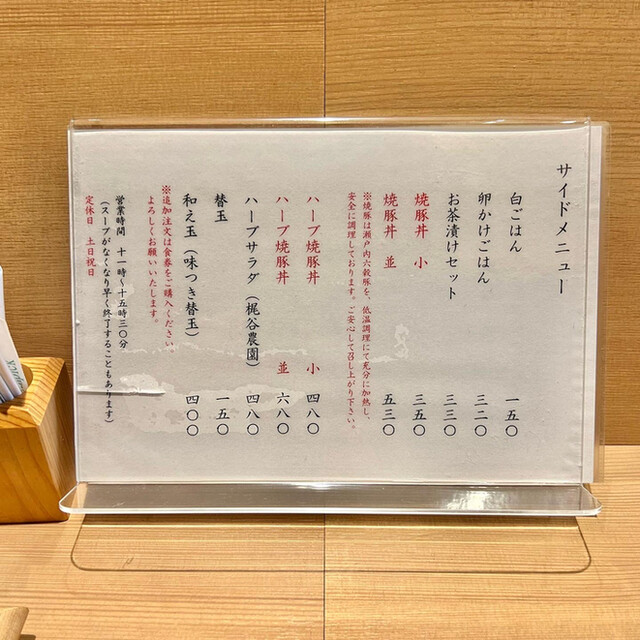 サイドメニュー
白ごはん 一五〇
卵かけごはん 三二〇
お茶漬けセット 三三〇
焼豚丼 小 三五〇
焼豚丼 並 五三〇
※焼豚は瀬戸内六穀豚を、低温調理にて充分に加熱し、
安全に調理しております。ご安心して召し上がり下さい。
ハーブ焼豚丼 小 四八〇
ハーブ焼豚丼 並 六八〇
ハーブサラダ（梶谷農園） 四八〇
替玉 一五〇
和え玉（味つき替玉） 四〇〇
※追加注文は食券をご購入ください
よろしくお願いいたします。
営業時間 十一時～十五時三〇分
（スープがなくなり早く終了することもあります）
定休日 土日祝日